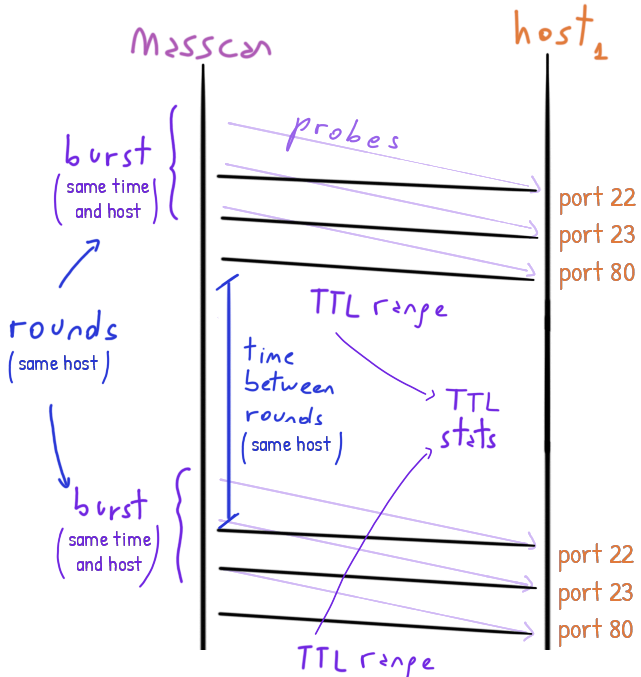 Masscan
host1
probes
burst
(same time
and host)
port 22
port 23
port 80
TTL range
rounds
(same host)
time
between
rounds
(same host)
TTL
stats
burst
(same time
and host)
port 22
port 23
port 80
TTL range